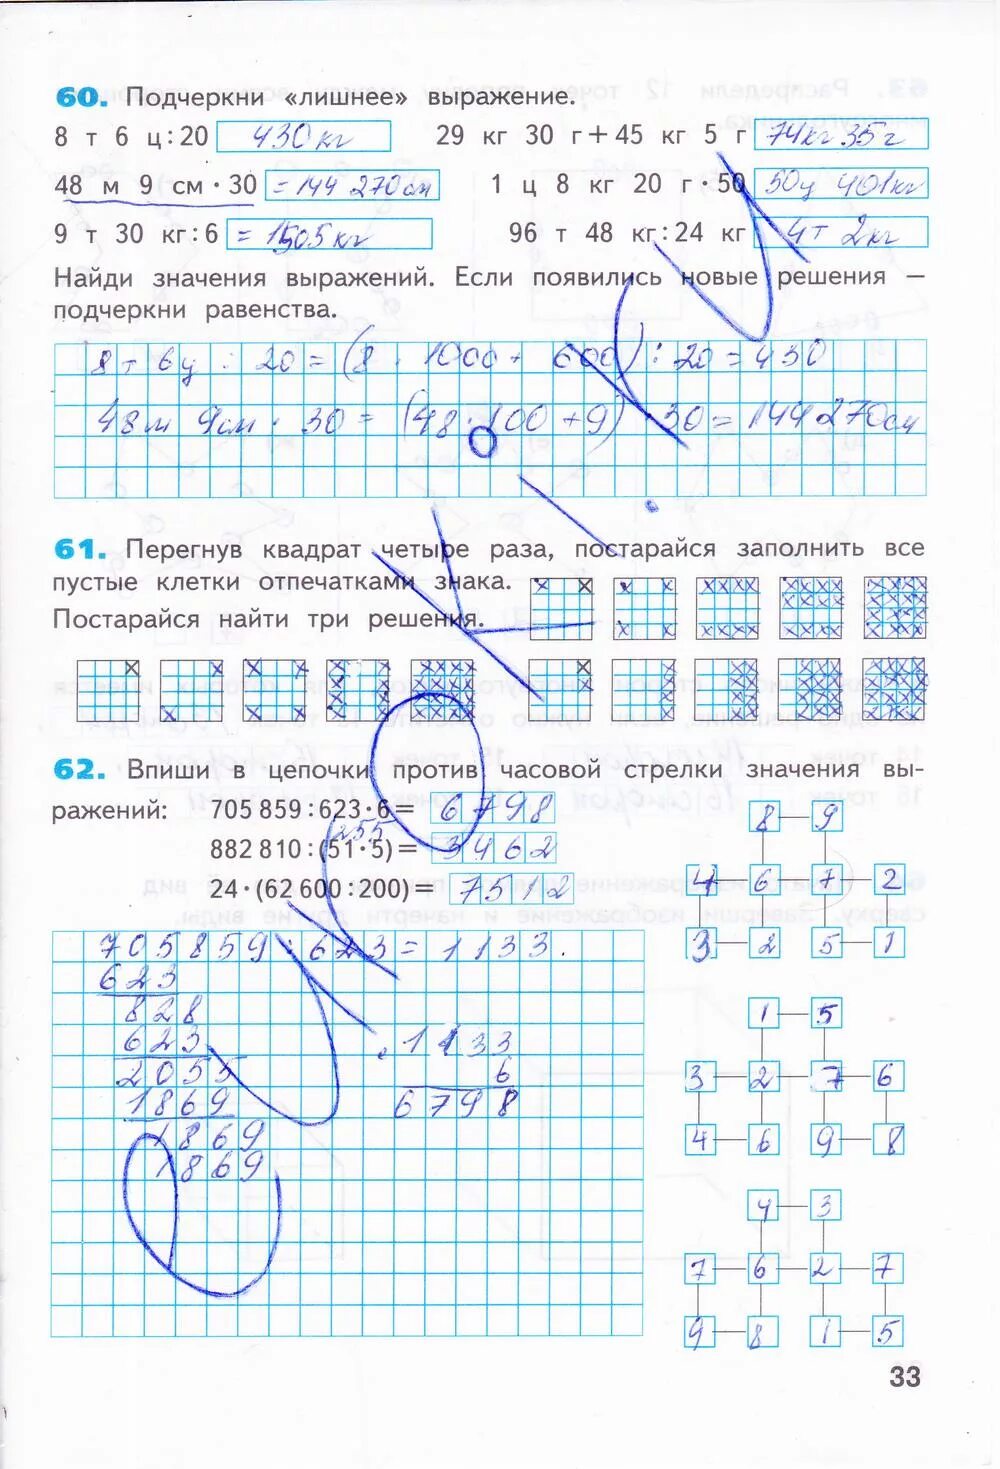 60. Подчеркни «лишнее» выражение.
8 т 6 ц : 20 430 кг 29 кг 30 г + 45 кг 5 г 74 кг 35 г
48 м 9 см · 30 = 144 270 см 1 ц 8 кг 20 г · 50 50 ц 401 кг
9 т 30 кг : 6 = 1505 кг 96 т 48 кг : 24 кг 4 т 2 кг
Найди значения выражений. Если появились новые решения —
подчеркни равенства.
8 т 6 ц : 20 = (8 · 1000 + 600) : 20 = 430
48 м 9 см · 30 = (48 · 100 + 9) · 30 = 144 270 см
61. Перегнув квадрат четыре раза, постарайся заполнить все
пустые клетки отпечатками знака.
Постарайся найти три решения.
62. Впиши в цепочки против часовой стрелки значения вы-
ражений: 705 859 : 623 · 6 = 6798
255
882 810 : (51 · 5) = 3462
24 · (62 600 : 200) = 7512
8 9
4 6 7 2
3 2 5 1
1 5
3 2 7 6
4 6 9 8
4 3
7 6 2 7
9 8 1 5
705859 : 623 = 1133.
623
828
623
2055
1869
1869
1869
1133
6
6798
33